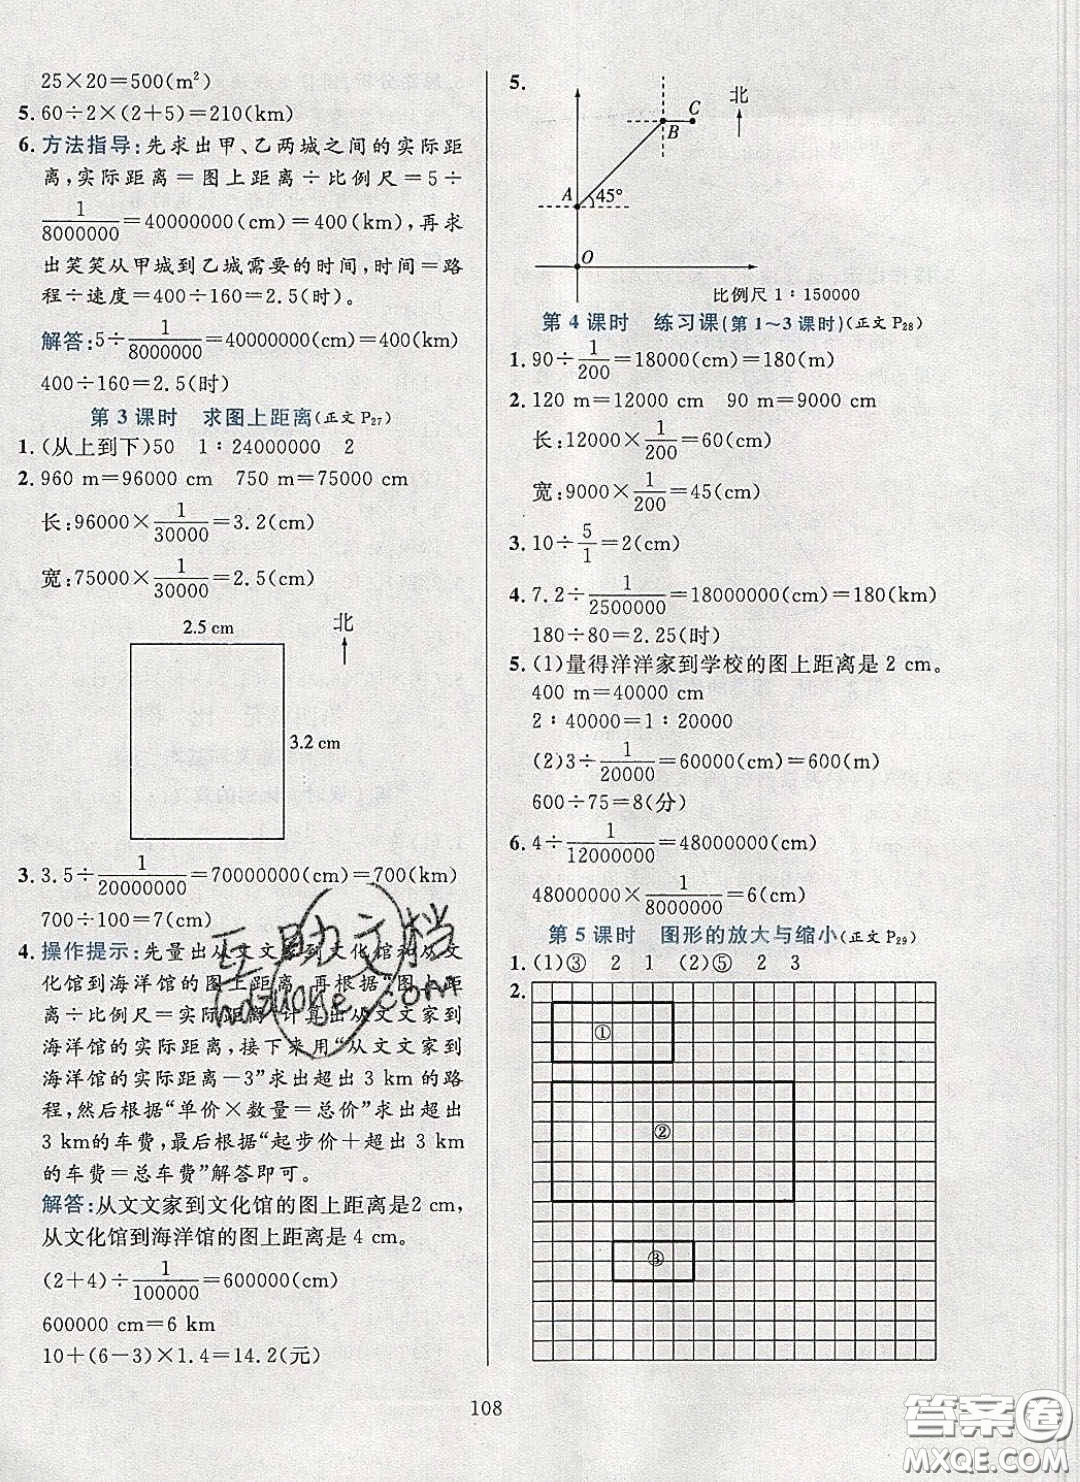 25×20=500(m²)
5. 60÷2×(2+5)=210(km)
6. 方法指导:先求出甲、乙两城之间的实际距
离,实际距离=图上距离÷比例尺=5÷
1/8000000=40000000(cm)=400(km),再求
出笑笑从甲城到乙城需要的时间,时间=路
程÷速度=400÷160=2.5(时)。
解答:5÷1/8000000=40000000(cm)=400(km)
400÷160=2.5(时)
第 3 课时 求图上距离(正文 P27)
1. (从上到下)50 1∶24000000 2
2. 960 m=96000 cm 750 m=75000 cm
长:96000×1/30000=3.2(cm)
宽:75000×1/30000=2.5(cm)
2.5 cm
北
3.2 cm
3. 3.5÷1/20000000=70000000(cm)=700(km)
700÷100=7(cm)
4. 操作提示:先量出从文文家到文化馆和从文
化馆到海洋馆的图上距离,再根据“图上距
离÷比例尺=实际距离”计算出从文文家到
海洋馆的实际距离,接下来用“从文文家到
海洋馆的实际距离-3”求出超出 3 km的路
程,然后根据“单价×数量=总价”求出超出
3 km的车费,最后根据“起步价+超出 3 km
的车费=总车费”解答即可。
解答:从文文家到文化馆的图上距离是2 cm,
从文化馆到海洋馆的图上距离是 4 cm。
(2+4)÷1/100000=600000(cm)
600000 cm=6 km
10+(6-3)×1.4=14.2(元)
互助文档
hdzuoye.com
5.
C
北
B
A
45°
O
比例尺 1∶150000
第 4 课时 练习课(第 1~3 课时)(正文 P28)
1. 90÷1/200=18000(cm)=180(m)
2. 120 m=12000 cm 90 m=9000 cm
长:12000×1/200=60(cm)
宽:9000×1/200=45(cm)
3. 10÷5/1=2(cm)
4. 7.2÷1/2500000=18000000(cm)=180(km)
180÷80=2.25(时)
5. (1)量得洋洋家到学校的图上距离是 2 cm。
400 m=40000 cm
2∶40000=1∶20000
(2)3÷1/20000=60000(cm)=600(m)
600÷75=8(分)
6. 4÷1/12000000=48000000(cm)
48000000×1/8000000=6(cm)
第 5 课时 图形的放大与缩小(正文 P29)
1. (1)③ 2 1 (2)⑤ 2 3
2.
①
②
③
108
答案圈
MXQE.COM